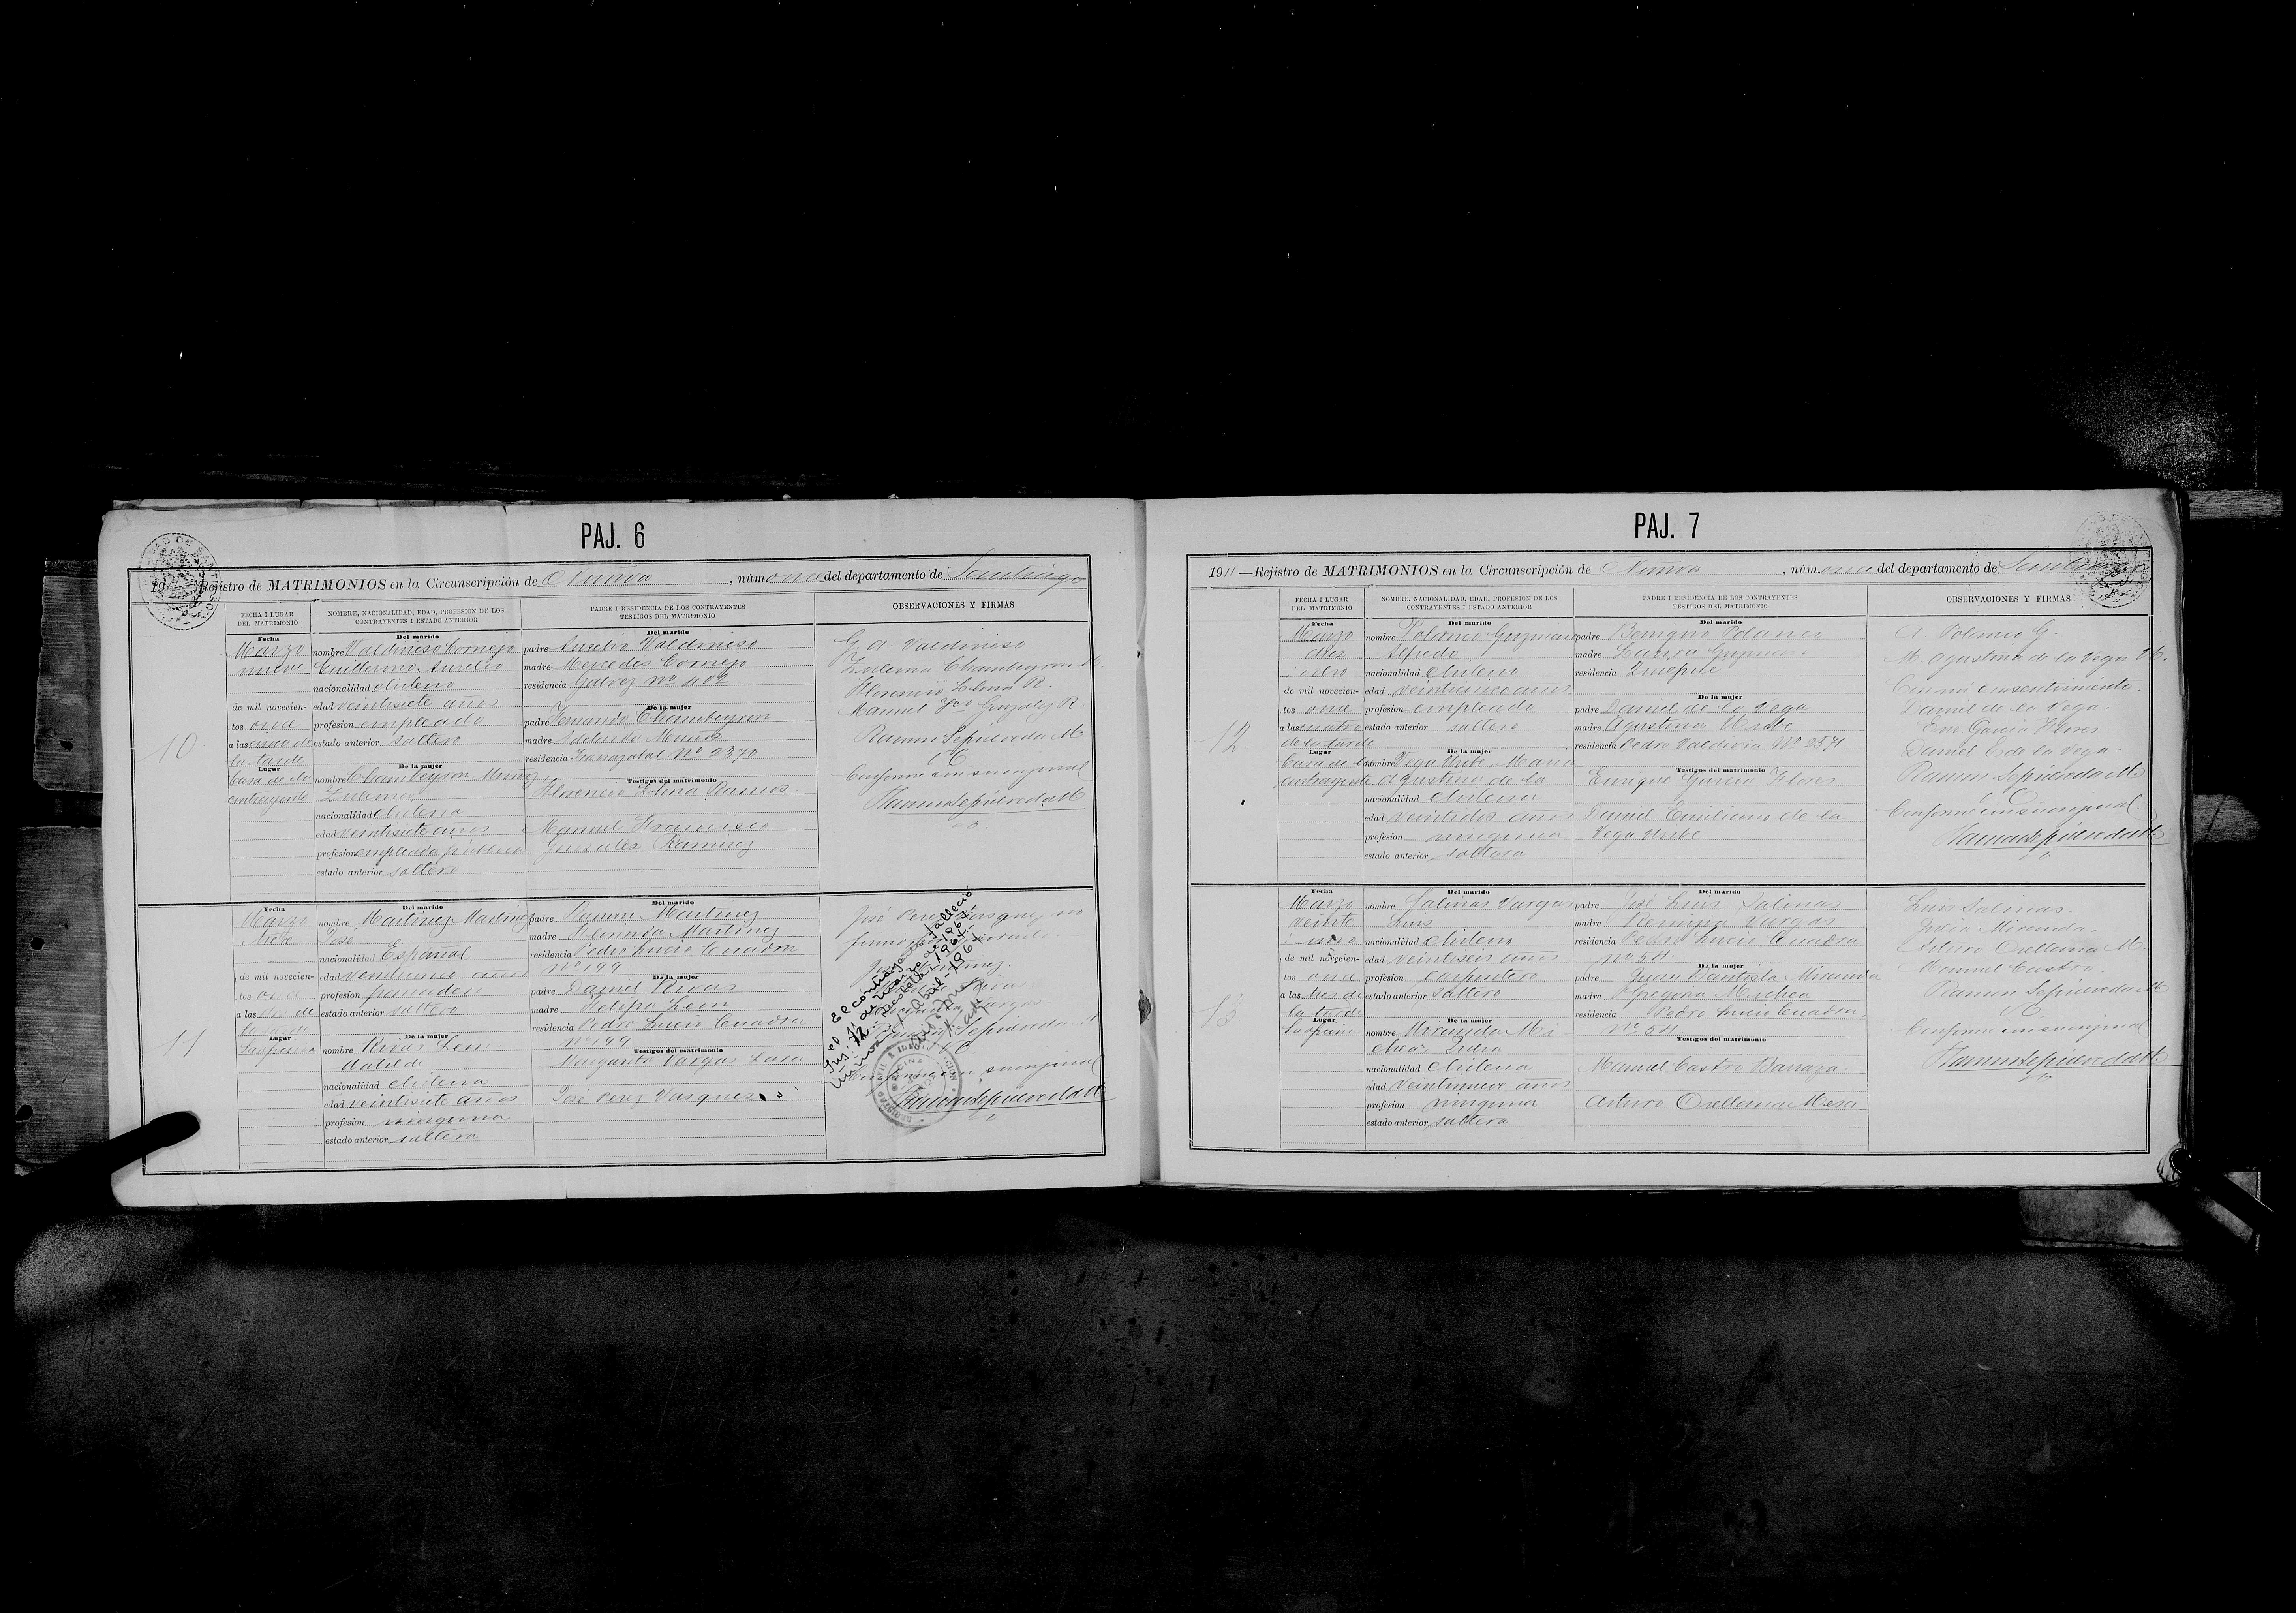 PAJ. 6
Rejistro de MATRIMONIOS en la Circunscripción de Nunoa, núm. once del departamento de Santiago
FECHA I LUGAR DEL MATRIMONIO
NOMBRE, NACIONALIDAD, EDAD, PROFESION DE LOS CONTRAYENTES I ESTADO ANTERIOR
PADRE I RESIDENCIA DE LOS CONTRAYENTES TESTIGOS DEL MATRIMONIO
OBSERVACIONES Y FIRMAS
10
Fecha
Marzo
nueve
de mil novecien-
tos once
a las cinco de
la tarde
Lugar
Casa de la
contrayente
Del marido
nombre Valdivieso Cornejo
Guillermo Aurelio
nacionalidad chileno
edad veintisiete años
profesion empleado
estado anterior soltero
De la mujer
nombre Chambeyron Munoz
Zulema
nacionalidad chilena
edad veintisiete años
profesion empleada pública
estado anterior soltera
Del marido
padre Aurelio Valdivieso
madre Mercedes Cornejo
residencia Galvez No 402
De la mujer
padre Fernando Chambeyron
madre Adelaida Munoz
residencia No 2370
Testigos del matrimonio
Florencio Ramos
Manuel Francisco
Gonzalez Ramirez
G. A. Valdivieso
Zulema Chambeyron M.
Florencio R.
Manuel Fco Gonzalez R.
Ramon Sepulveda M
Conforme con su orijinal
Ramon Sepulveda M
11
Fecha
Marzo
de mil novecien-
tos once
a las de
la tarde
Lugar
La oficina
Del marido
nombre Martinez Martinez
José
nacionalidad Español
edad años
profesion panadero
estado anterior soltero
De la mujer
nombre Rivas Leon
nacionalidad chilena
edad veintisiete años
profesion ninguna
estado anterior soltera
Del marido
padre Ramon Martinez
madre Martinez
residencia Pedro Lucio Cuadra
No 199
De la mujer
padre Daniel Rivas
madre Felipa Leon
residencia Pedro Lucio Cuadra
No 199
Testigos del matrimonio
Margarita Vargas Lara
José Perez Vasquez
José Perez Vasquez no
El contrayente falleció
el de Marzo de 1964.
Abril-1964
Conforme con su orijinal
Ramon Sepulveda M
PAJ. 7
1911 —Rejistro de MATRIMONIOS en la Circunscripción de Nunoa, núm. once del departamento de Santiago
FECHA I LUGAR DEL MATRIMONIO
NOMBRE, NACIONALIDAD, EDAD, PROFESION DE LOS CONTRAYENTES I ESTADO ANTERIOR
PADRE I RESIDENCIA DE LOS CONTRAYENTES TESTIGOS DEL MATRIMONIO
OBSERVACIONES Y FIRMAS
12
Fecha
Marzo
diez
i ocho
de mil novecien-
tos once
a las cuatro
de la tarde
Lugar
Casa de la
contrayente
Del marido
nombre Polanco Guzman
Alfredo
nacionalidad chileno
edad veinticinco años
profesion empleado
estado anterior soltero
De la mujer
nombre Vega Uribe, Maria
Agustina de la
nacionalidad chilena
edad veintidos años
profesion ninguna
estado anterior soltera
Del marido
padre Benigno Polanco
madre Laura Guzman
residencia Quilpué
De la mujer
padre Daniel de la Vega
madre Agustina Uribe
residencia Pedro Valdivia No 2371
Testigos del matrimonio
Enrique Garcia Flores
Daniel Emiliano de la
Vega Uribe
A. Polanco G.
M. Agustina de la Vega U.
Con mi consentimiento.
Daniel de la Vega.
Enr. Garcia Flores
Daniel E de la Vega
Ramon Sepulveda M
Conforme con su orijinal
Ramon Sepulveda M
13
Fecha
Marzo
veinte
i uno
de mil novecien-
tos once
a las tres de
la tarde
Lugar
La oficina
Del marido
nombre Salinas Vargas
Luis
nacionalidad chileno
edad veintiseis años
profesion carpintero
estado anterior soltero
De la mujer
nombre Miranda Mi-
chea, Julia
nacionalidad chilena
edad veintinueve años
profesion ninguna
estado anterior soltera
Del marido
padre José Luis Salinas
madre Remijia Vargas
residencia Pedro Lucio Cuadra
No 54
De la mujer
padre Juan Bautista Miranda
madre Gregoria Michea
residencia Pedro Lucio Cuadra,
No 54
Testigos del matrimonio
Manuel Castro Barraza
Arturo Orellana Mesa
Luis Salinas.
Julia Miranda.
Arturo Orellana M.
Manuel Castro.
Ramon Sepulveda M
Conforme con su orijinal
Ramon Sepulveda M.